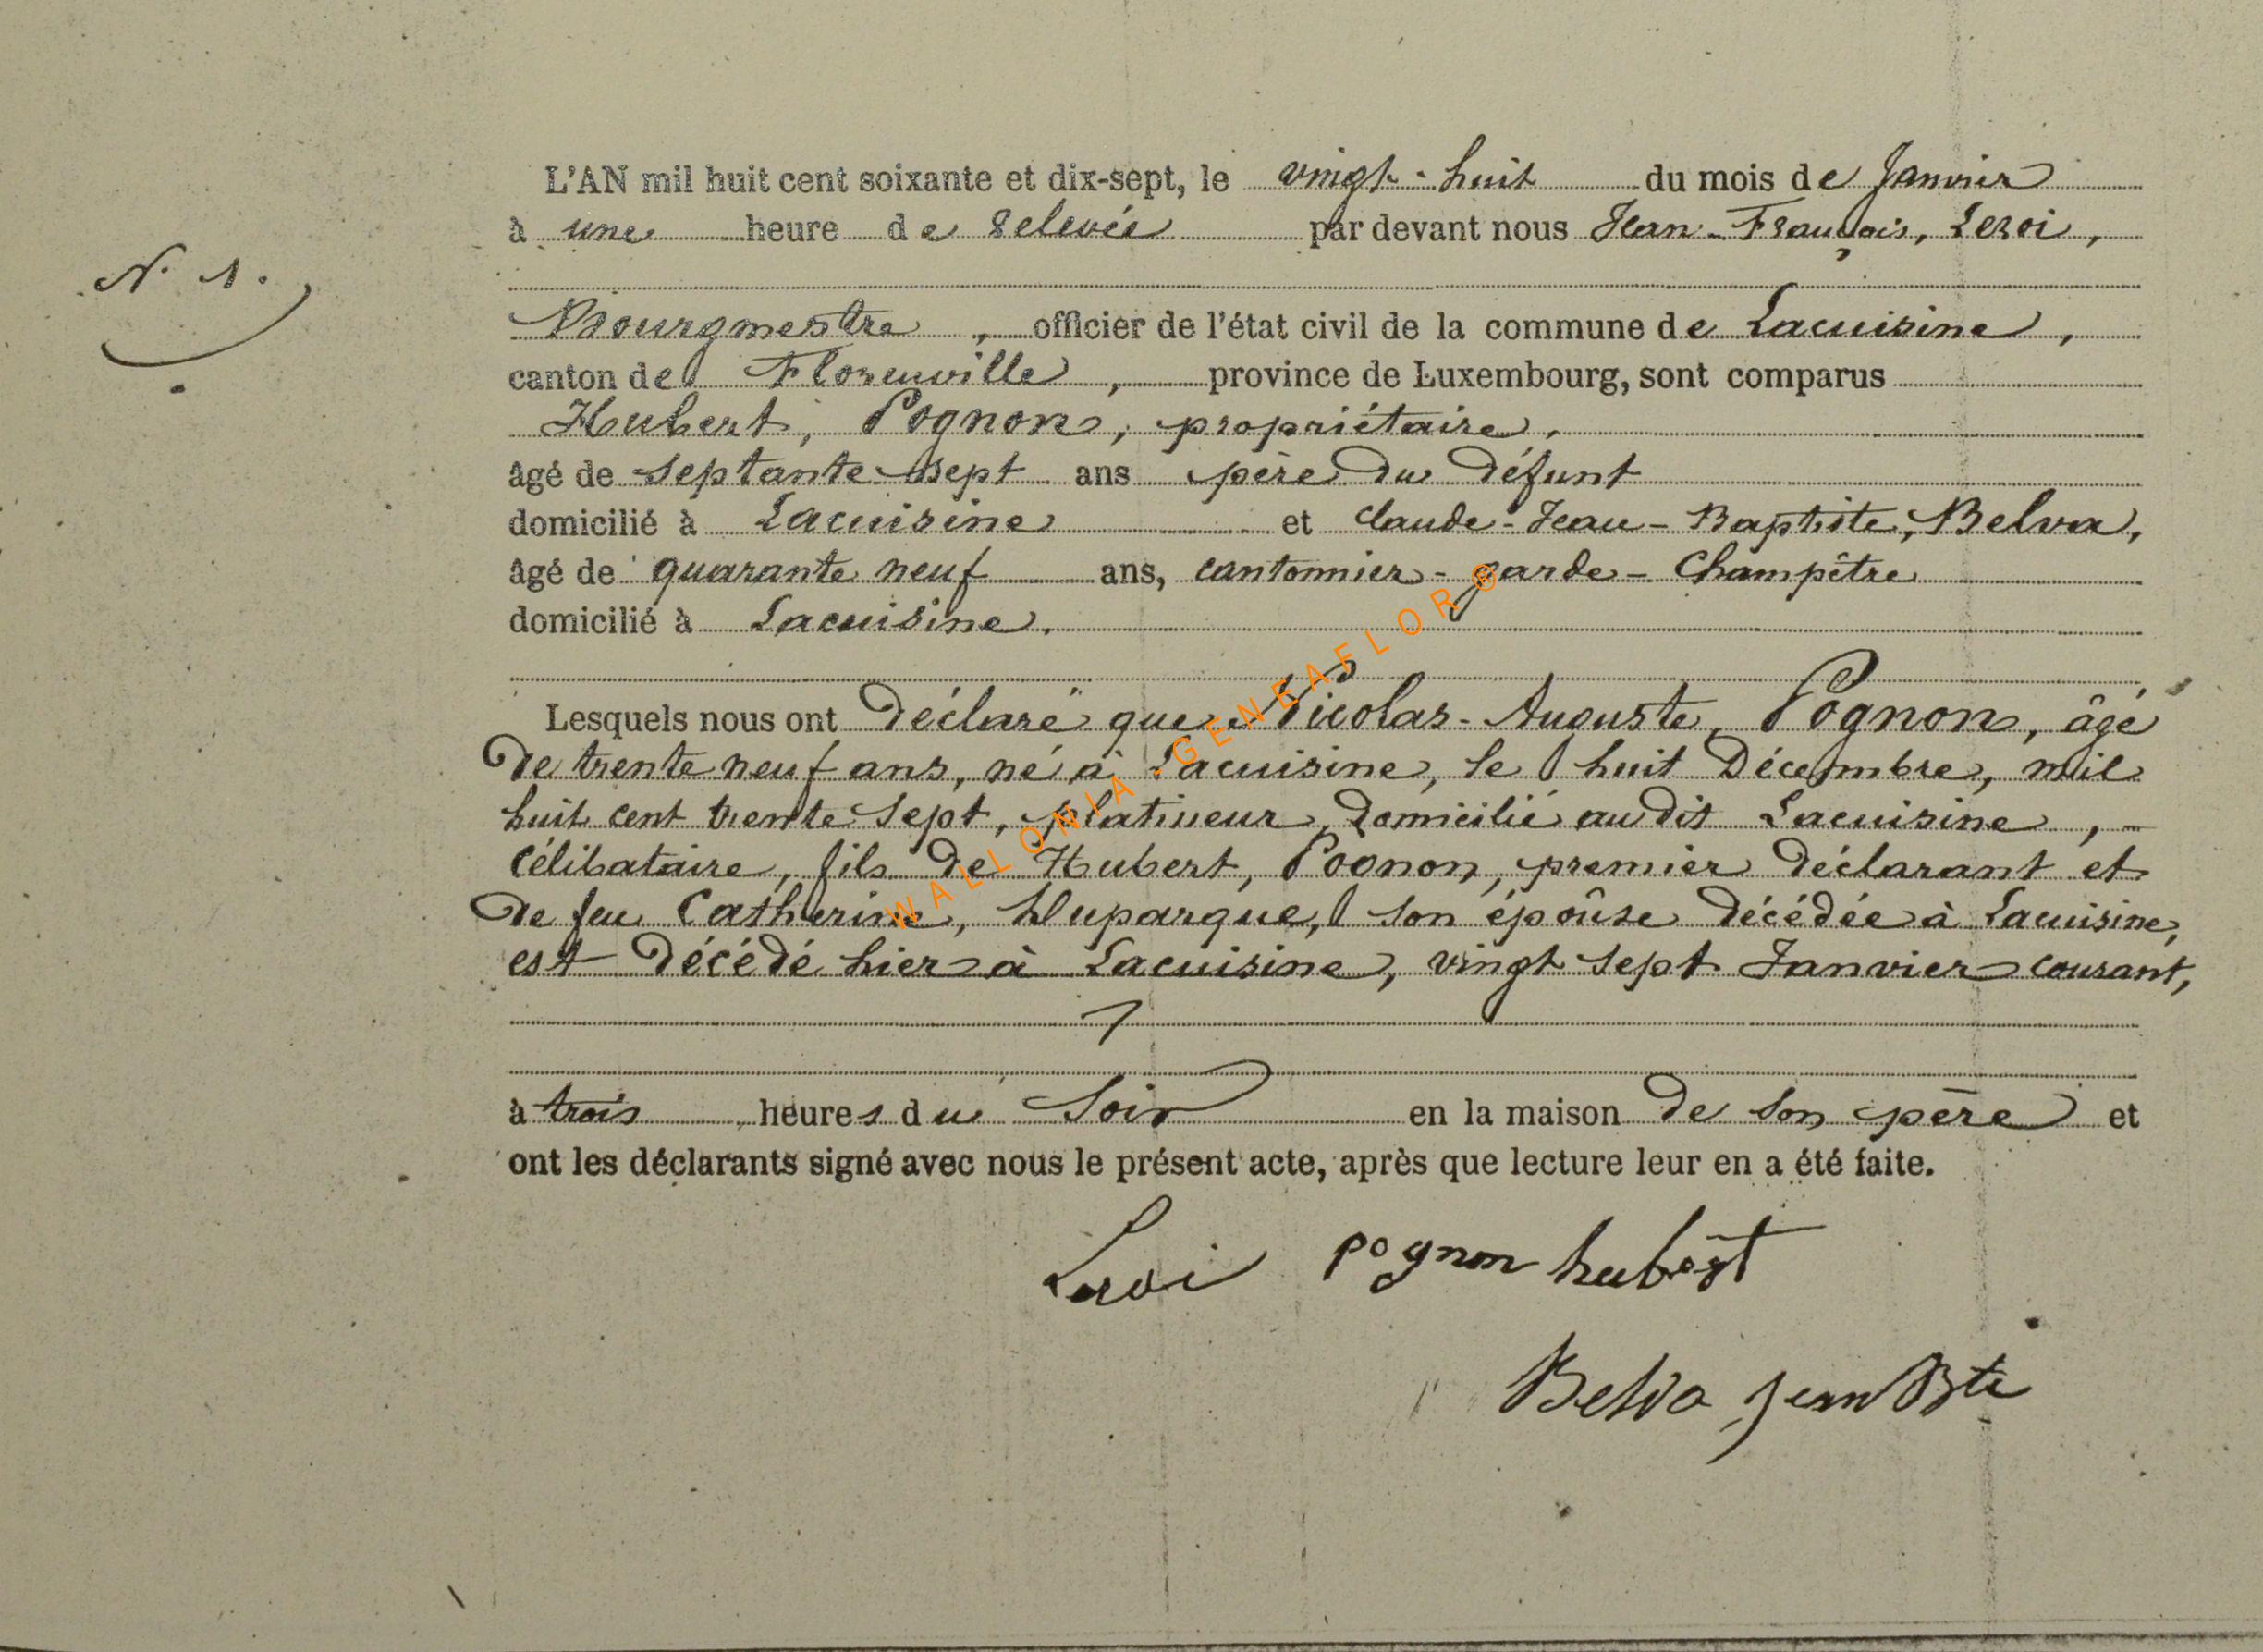 N. 1.
L'AN mil huit cent soixante et dix-sept, le vingt-huit du mois de Janvier
à une heure de relevée par devant nous Jean-François, Leroi,
Bourgmestre, officier de l'état civil de la commune de Lacuisine,
canton de Florenville, province de Luxembourg, sont comparus
Hubert, Pognon, propriétaire,
âgé de septante-sept ans père du défunt
domicilié à Lacuisine et Claude-Jean-Baptiste, Belva,
âgé de quarante neuf ans, cantonnier-garde-Champêtre
domicilié à Lacuisine.
Lesquels nous ont déclaré que Nicolas-Auguste, Pognon, âgé
de trente neuf ans, né à Lacuisine, le huit Décembre, mil
huit cent trente sept, platineur, domicilié audit Lacuisine, -
célibataire, fils de Hubert, Pognon, premier déclarant et
de feu Catherine, Huparque, son époûse décédée à Lacuisine,
est décédé hier à Lacuisine, vingt sept Janvier courant,
à trois heures du soir en la maison de son père et
ont les déclarants signé avec nous le présent acte, après que lecture leur en a été faite.
Leroi pognon hubert
Belva Jean Bte
WALLONIA GENEAFLOR©